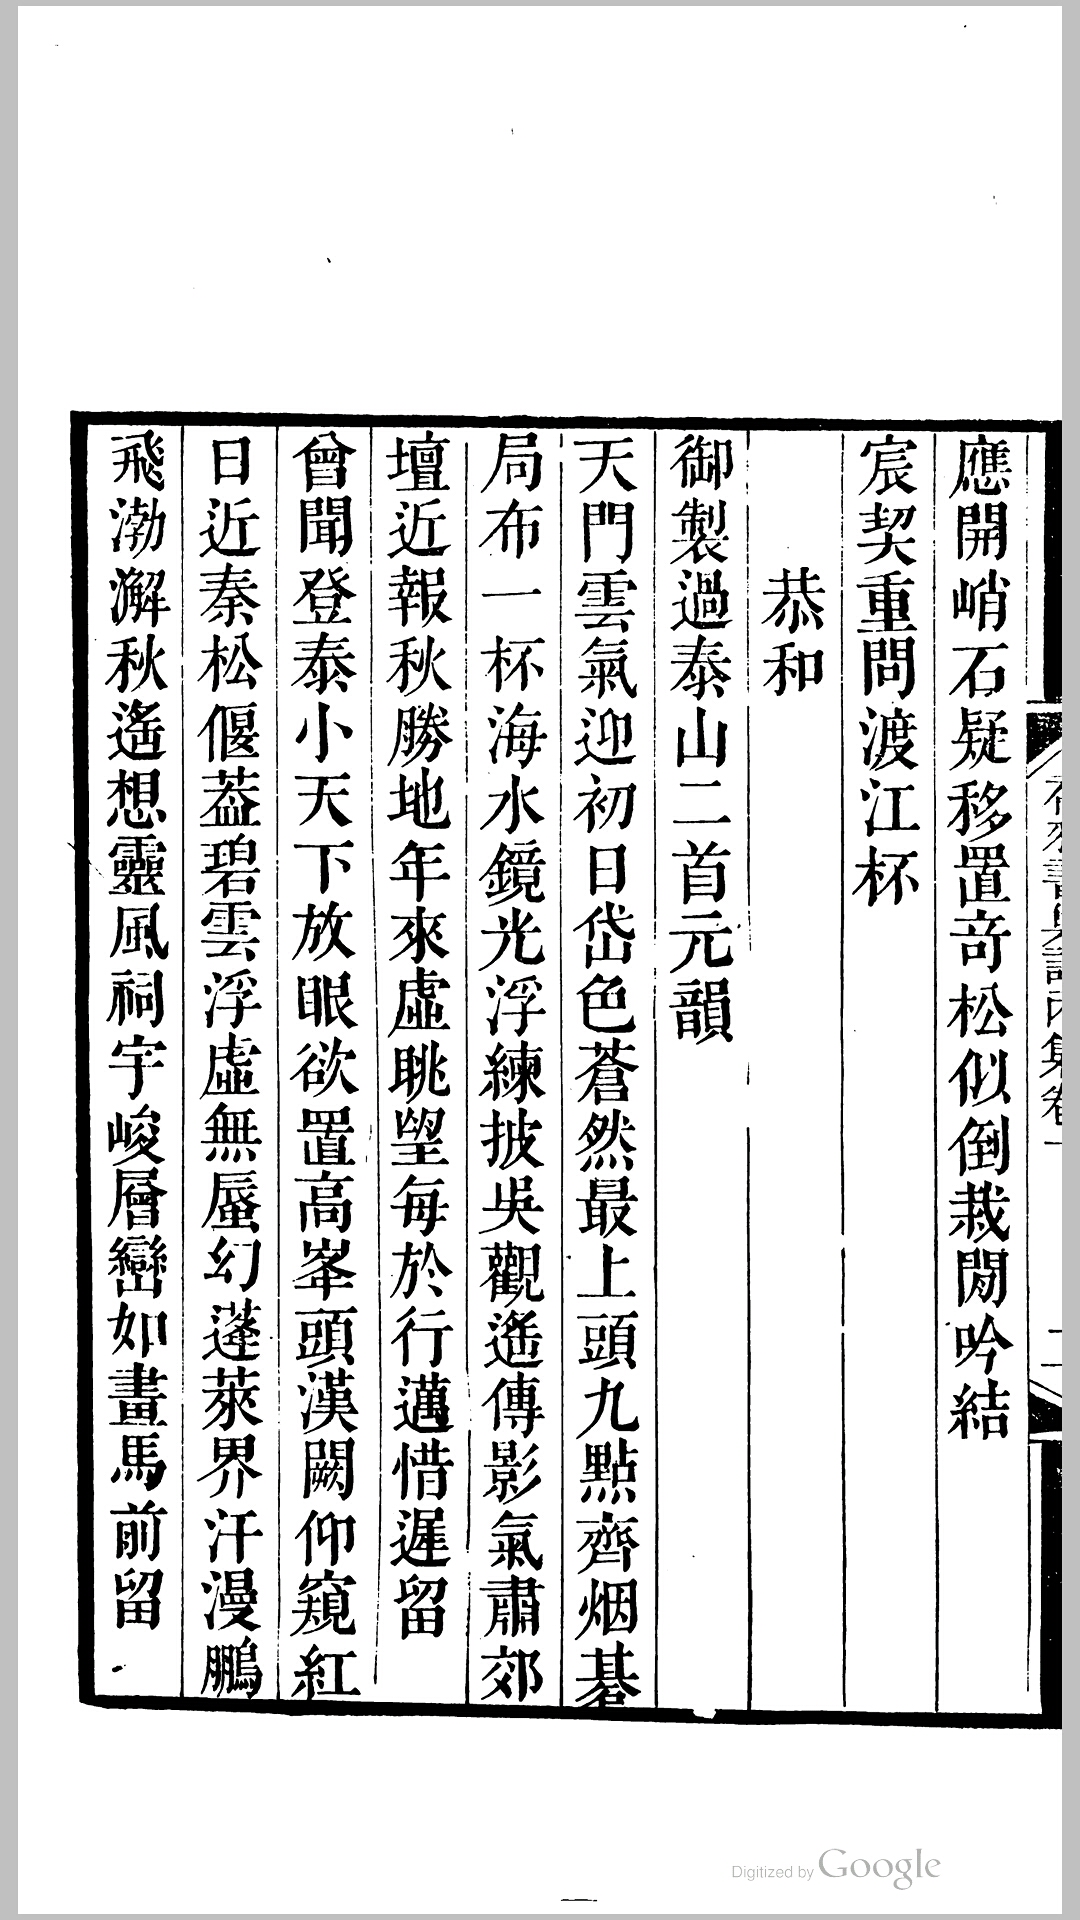 應開峭石疑移置奇松似倒栽閒吟結
宸契重問渡江杯
恭和
御製過泰山二首元韻
天門雲氣迎初日岱色蒼然最上頭九點齊烟碁
局布一杯海水鏡光浮練披吳觀遙傳影氣肅郊
壇近報秋勝地年來虛眺望每於行邁惜遲留
曾聞登泰小天下放眼欲置高峯頭漢闕仰窺紅
日近秦松偃葢碧雲浮虛無蜃幻蓬萊界汗漫鵬
飛渤澥秋遙想靈風祠宇峻層巒如畫馬前留
Digitized by Google